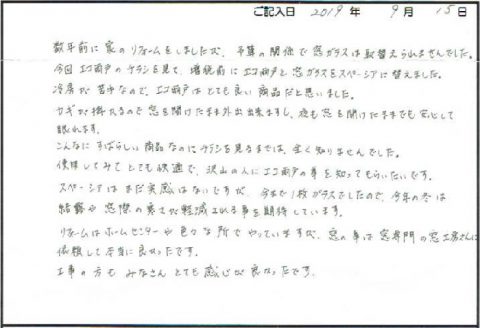 ご記入日 2019年 9月 15日
数年前に家のリフォームをしましたが、予算の関係で窓ガラスは取替えられませんでした。
今回エコ雨戸のチラシを見て、増税前にエコ雨戸と窓ガラスをスペーシアに替えました。
冷房が苦手なので、エコ雨戸はとても良い商品だと思いました。
カギが掛れるので窓を開けたまま外出出来ますし、夜も窓を開けたままでも安心して
眠れます。
こんなにすばらしい商品なのにチラシを見るまでは、全く知りませんでした。
使用してみてとても快適で、沢山の人にエコ雨戸の事を知ってもらいたいです。
スペーシアはまだ実感はないですが、今まで1枚ガラスでしたので、今年の冬は
結露や窓際の寒さが軽減される事を期待しています。
リフォームはホームセンターや色々な所でやっていますが、窓の事は窓専門の窓工房さんに
依頼して本当に良かったです。
工事の方もみなさんとても感じが良かったです。